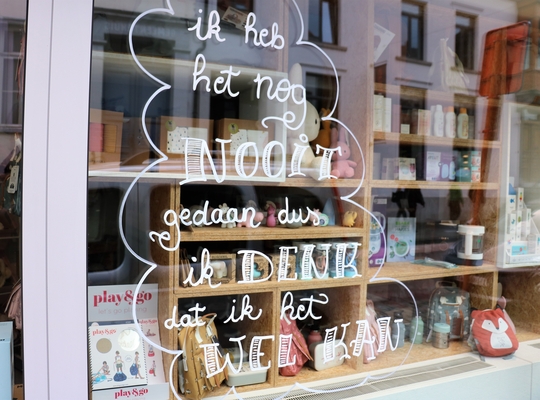 ik heb
het nog
NOOIT
gedaan dus
ik DENK
dat ik het
WEL KAN
play&go
play&go
play&go